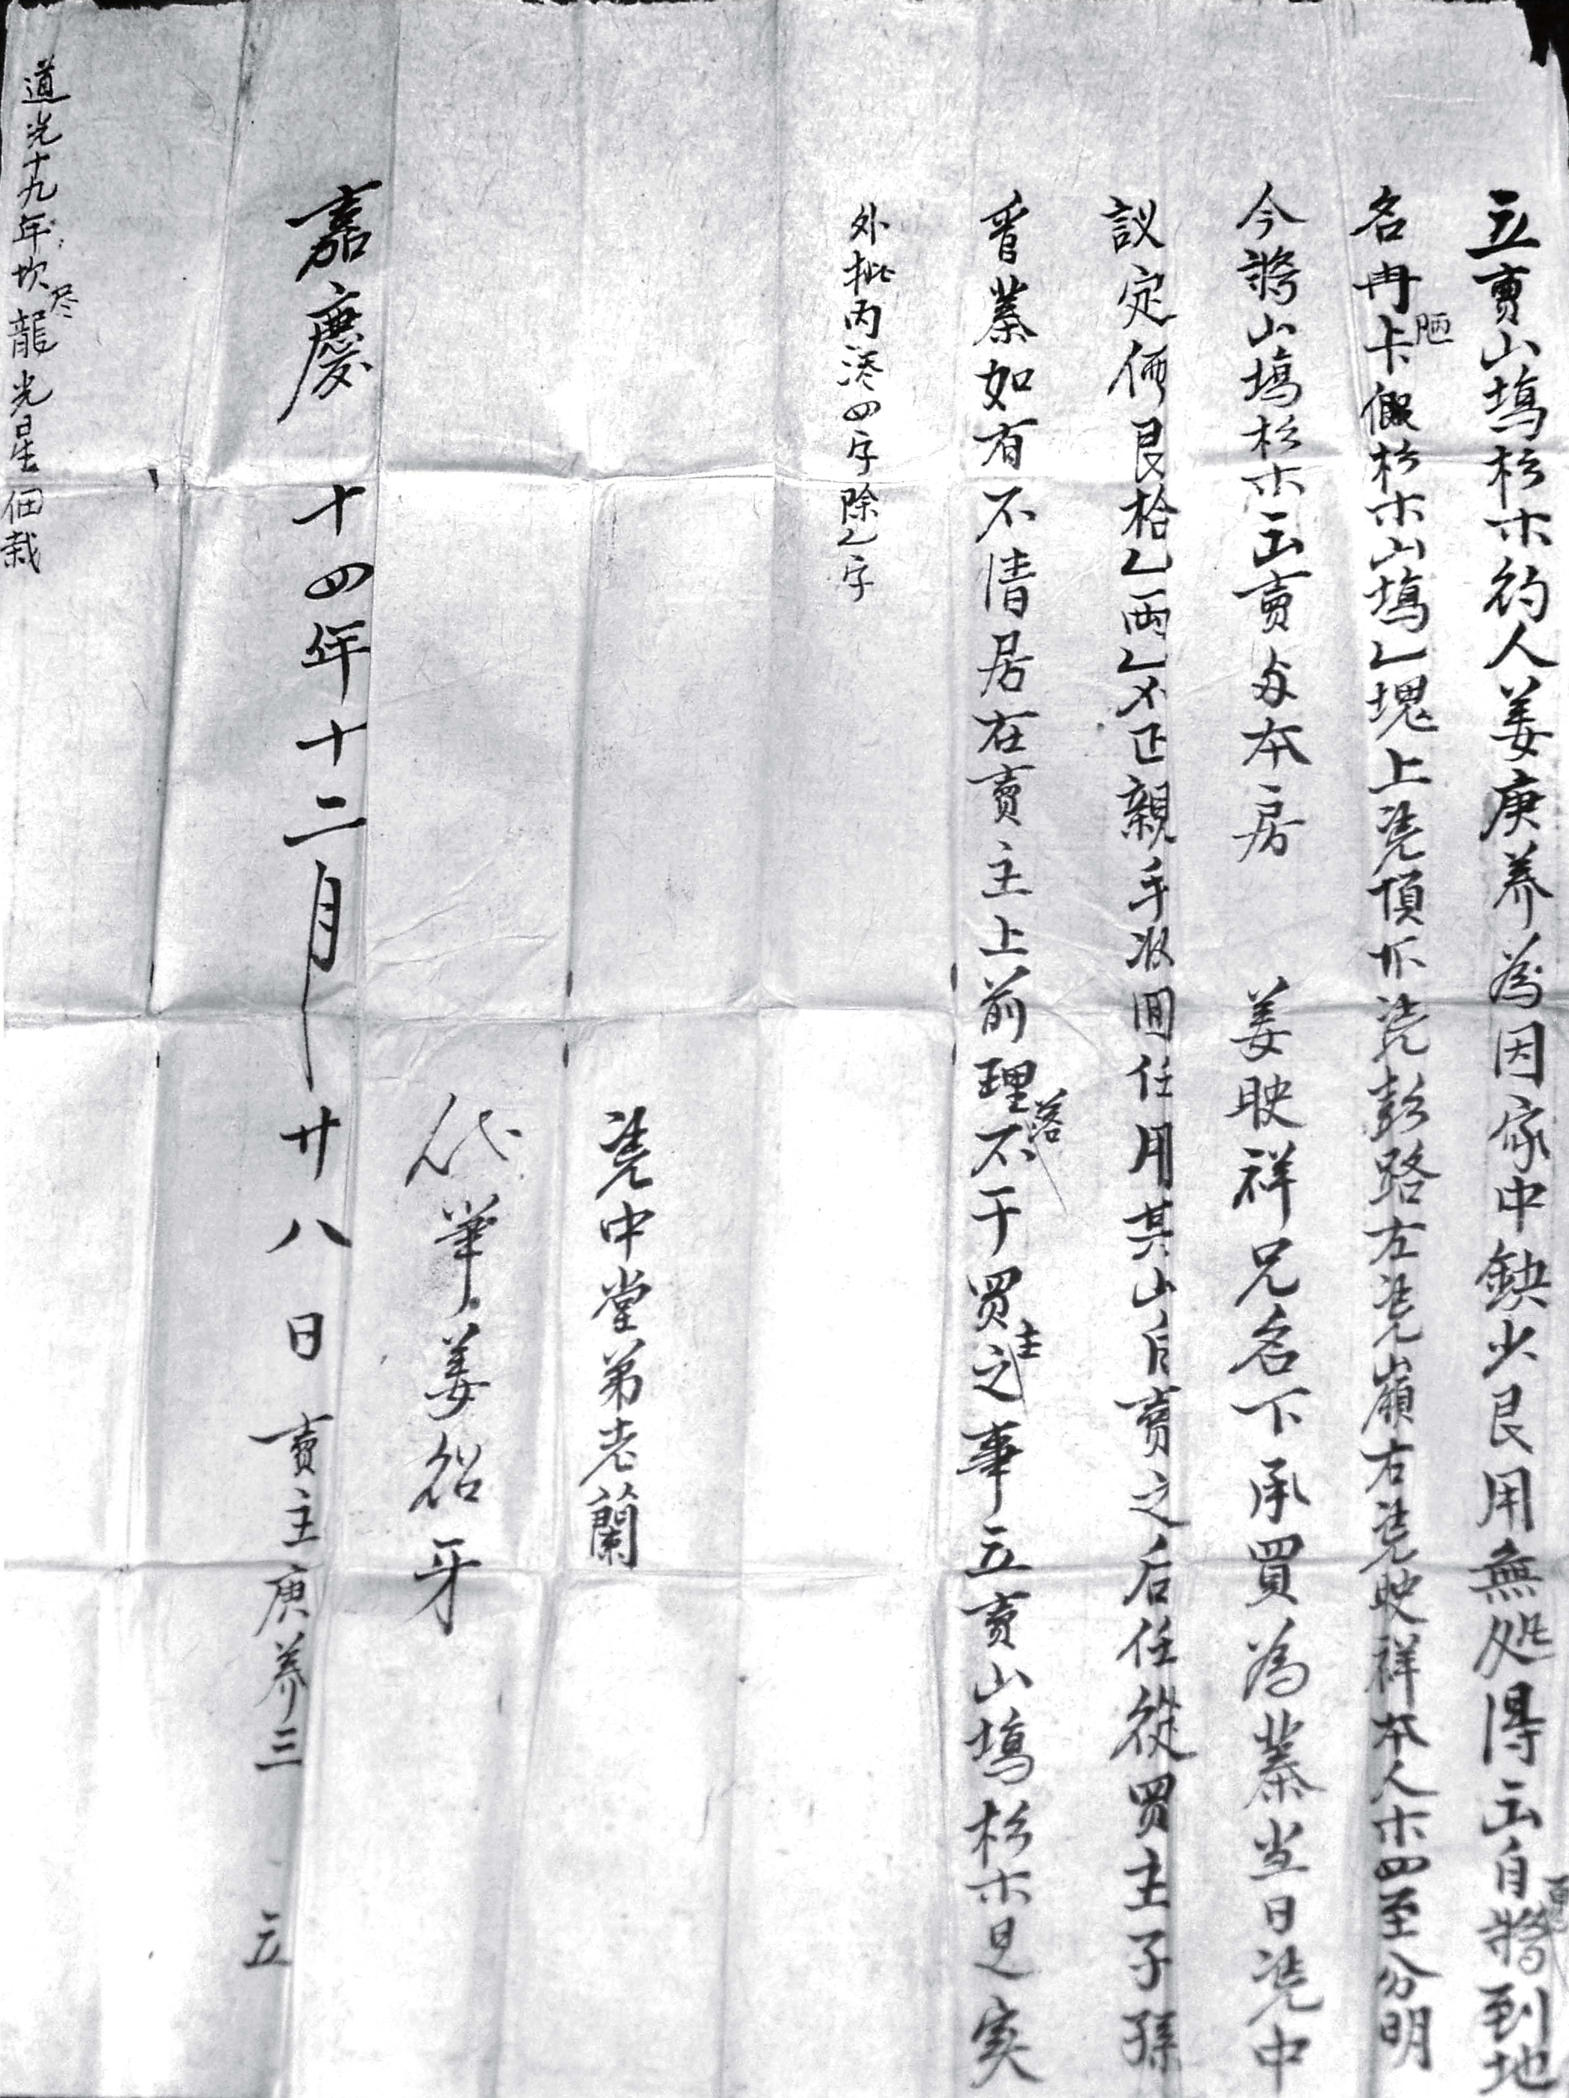 立賣山塲杉木約人姜庚养為因家中缺少艮用無処得出自願將到地
名冉卡陋假杉木山塲乙塊上凴頂下凴彭路左凴嶺右凴映祥本人木四至分明
今將山塲杉木出賣与本房 姜映祥兄名下承買為業当日凴中
議定價艮拾乙両乙錢正親手收囬任用其山自賣之后任從買主子孫
管業如有不清居在賣主上前理落不干買主之事立賣山塲杉木是実
外批内添四字除乙字
凴中堂弟老蘭
代筆姜紹牙
嘉慶十四年十二月廿八日 賣主庚养三 立
道光十九年坎尽龍光星佃栽